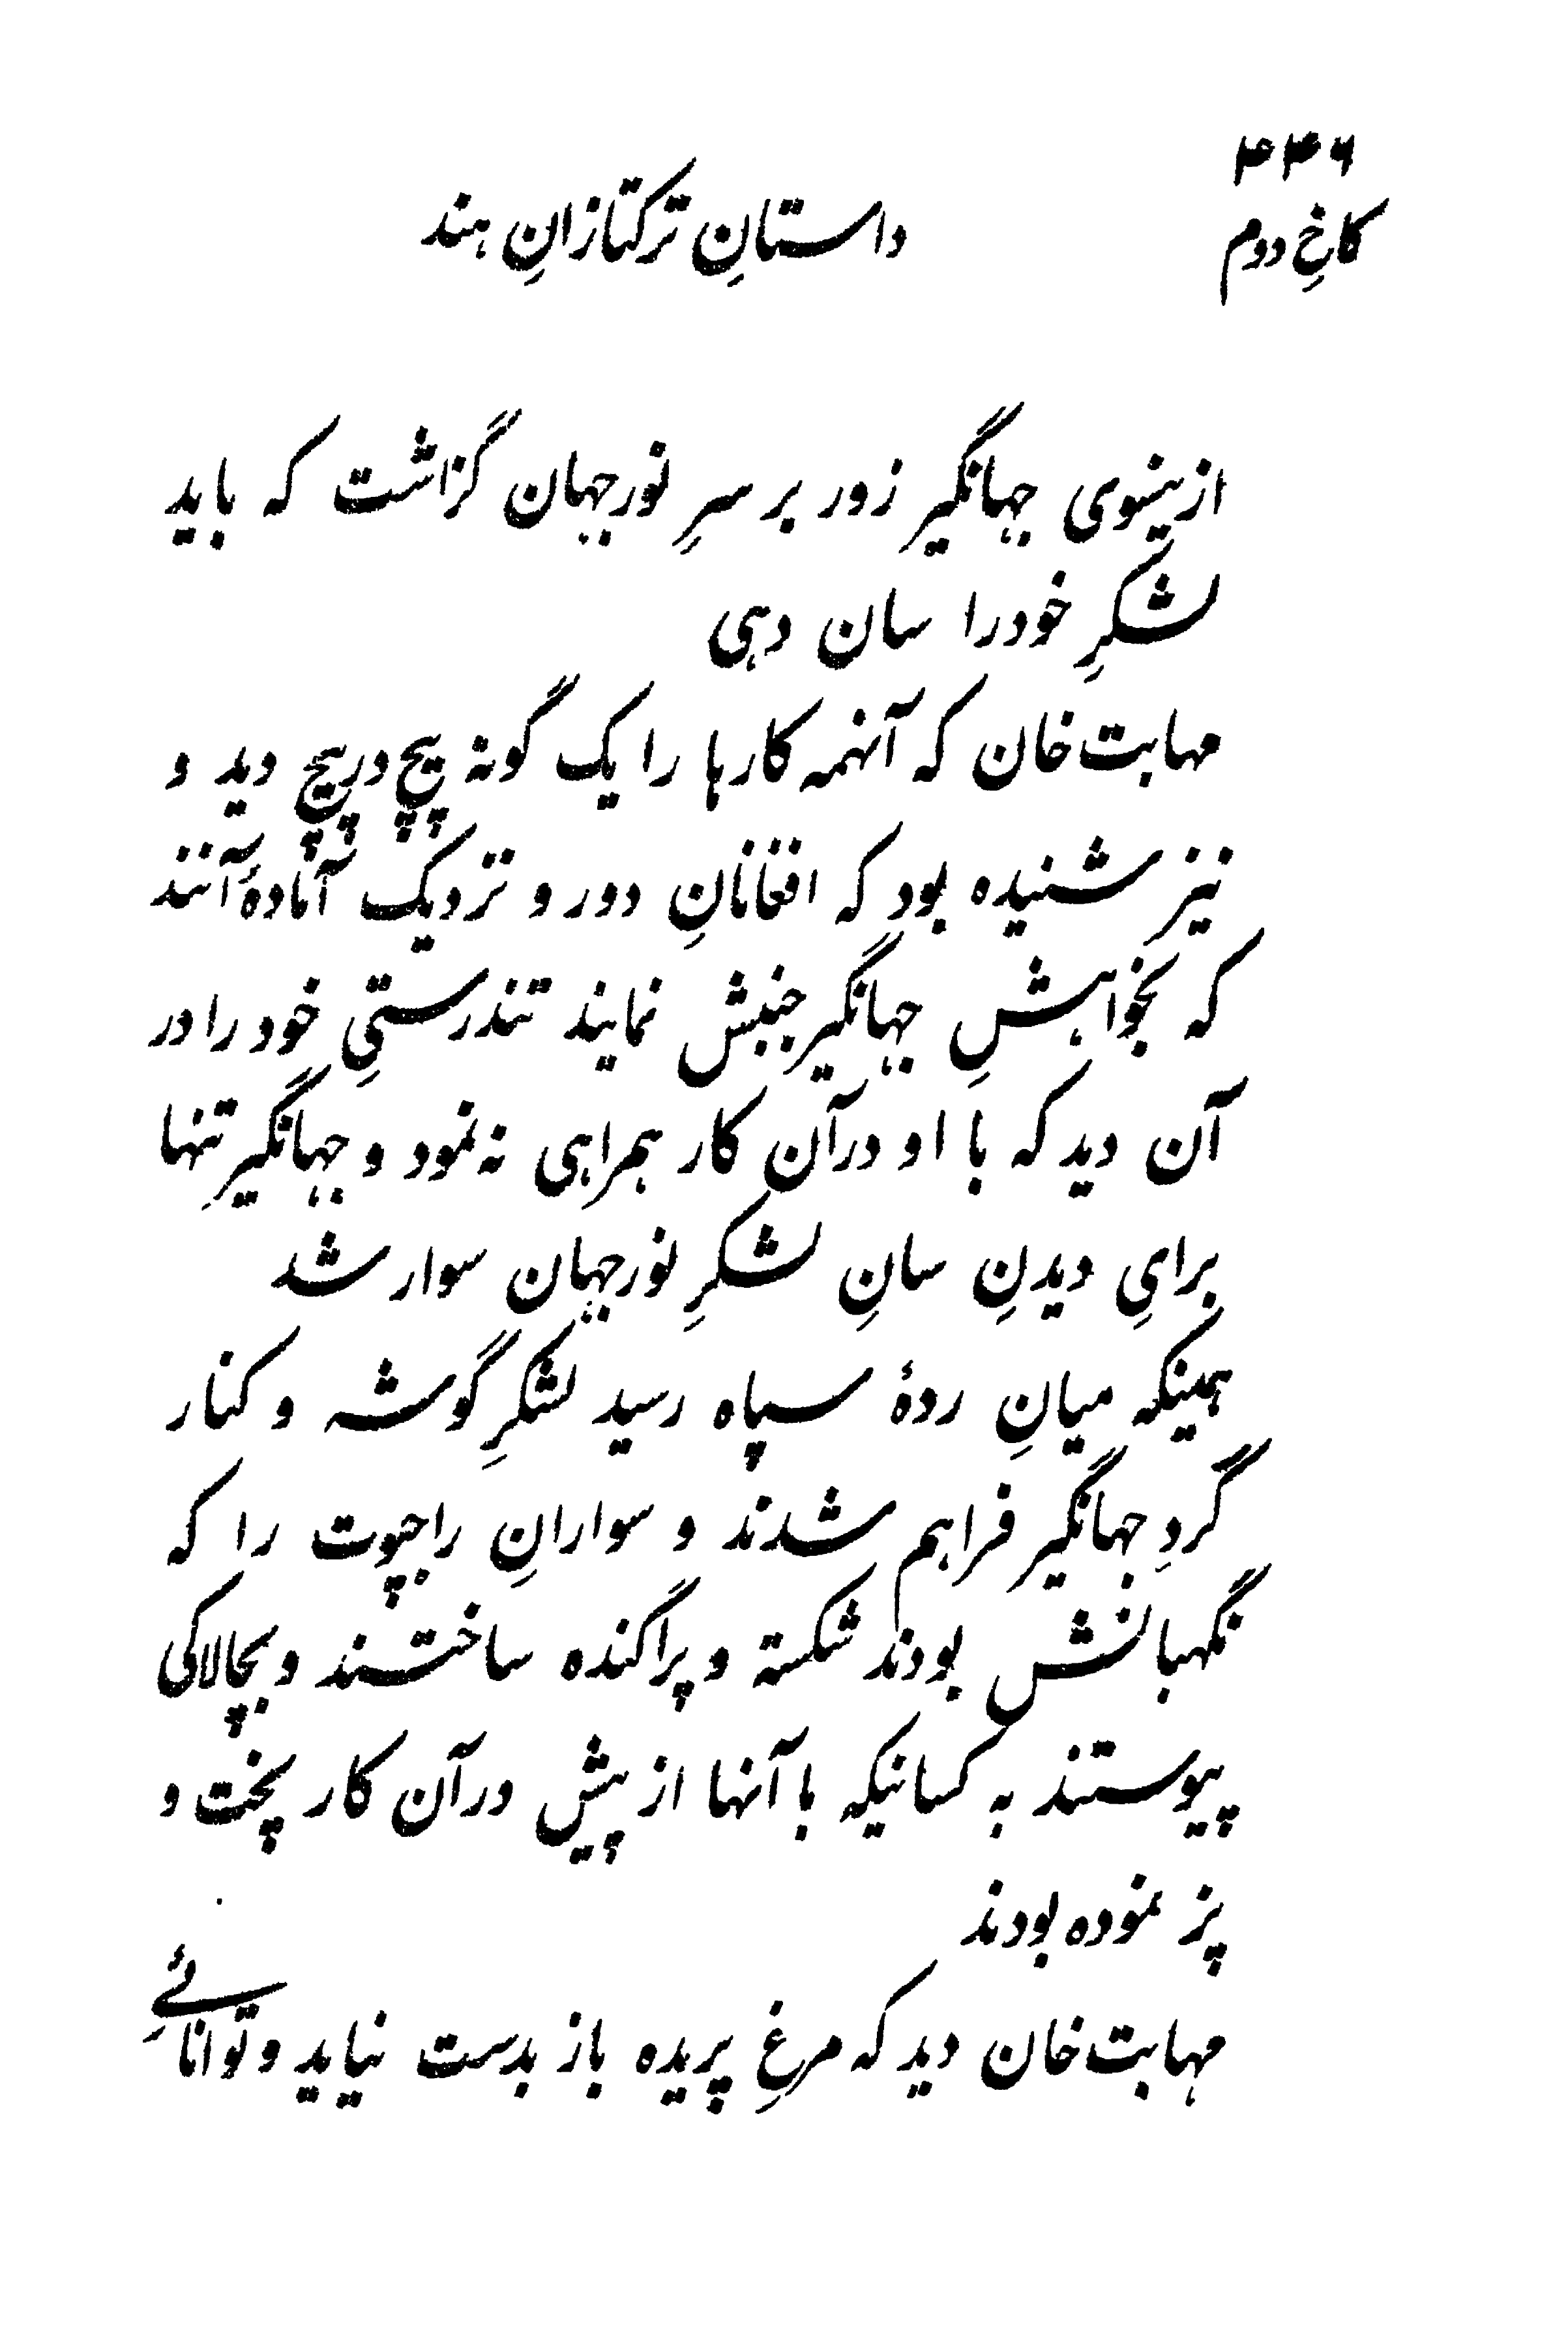 ۴۴۶
کاخِ دوم
داستانِ ترکتازانِ هند
ازینسوی جهانگیر زور بر سرِ نورجهان گزاشت که باید
لشکرِ خودرا سان دهی
مهابت خان که آنهمه کارها را یک گونه پیچ درپیچ دید و
نیز شنیده بود که افغانانِ دور و نزدیک آمادۀ آنند
که بخواهشِ جهانگیر جنبش نمایند تندرستیِ خود را در
آن دید که با او درآن کار همراهی نه نمود و جهانگیر تنها
برایِ دیدنِ سانِ لشکرِ نورجهان سوار شد
همینکه میانِ ردۀ سپاه رسید لشکرِ گوشه و کنار
گردِ جهانگیر فراهم شدند و سوارانِ راجپوت را که
نگهبانش بودند شکسته و پراگنده ساختند و بچالاکی
پیوستند به کسانیکه با آنها از پیش درآن کار پخت و
پز نموده بودند
مهابت خان دید که مرغِ پریده باز بدست نیاید و توانائےِ